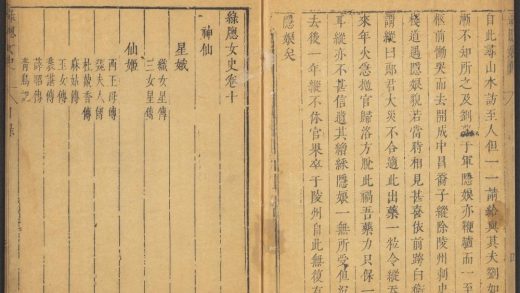 自此尋山水訪至人但一一請給與其夫劉如
漸不知所之及劉于軍隱娘亦鞭驢而一至
柩前慟哭而去開成中昌裔子縱除陵州刺史
棧道遇隱娘貌若當時相見甚喜依前跨白衛
語縱曰郎君大災不合適此出藥一粒令縱吞
來年火急拋官歸洛方脫此禍吾藥力只保一
耳縱亦不甚信遺其繒綵隱娘一無所受但沉
去後一年縱不休官果卒于陵州自此無復有
隱娘矣
綠窻女史卷十
神仙
星娥
織女星傳
三女星傳
仙姬
西王母傳
夫人傳
杜蘭香傳
麻姑傳
玉女傳
裴諶傳
薛昭傳